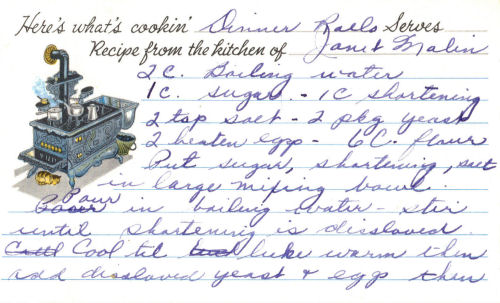 Here's what's cookin' Dinner Rolls Serves
Recipe from the kitchen of Janet Malin
2 C. Boiling water
1 C. sugar - 1 C shortening
2 tsp salt - 2 pkg yeast
2 beaten egg - 6 C. flour
Put sugar, shortening, salt
in large mixing bowl.
Pour in boiling water - stir
until shortening is dissloved
Cool til luke warm then
add dissloved yeast & egg then